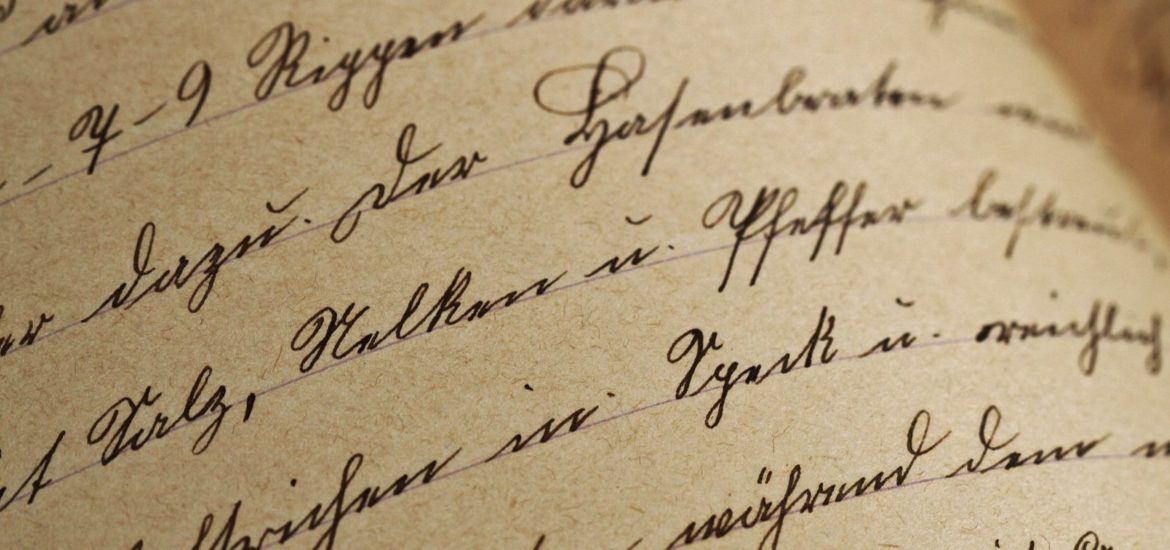 - 7 - 9 Rippen
dazu. Der Hasenbraten
Salz, Nelken u. Pfeffer bestreut
in Speck u. reichlich
während dem